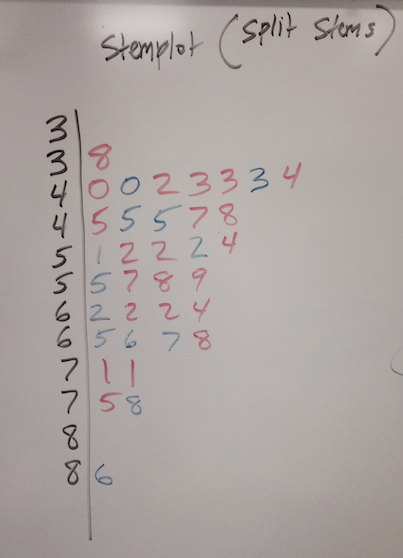 Stemplot (Split Stems)
3
3 8
4 0 0 2 3 3 3 4
4 5 5 5 7 8
5 1 2 2 2 4
5 5 7 8 9
6 2 2 2 4
6 5 6 7 8
7 1 1
7 5 8
8
8 6